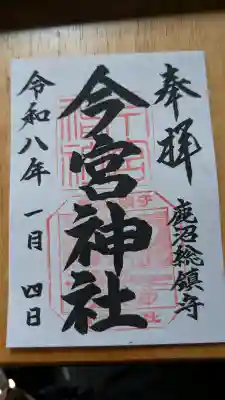 奉拝
鹿沼総鎮守
今宮神社
令和八年 一月 四日